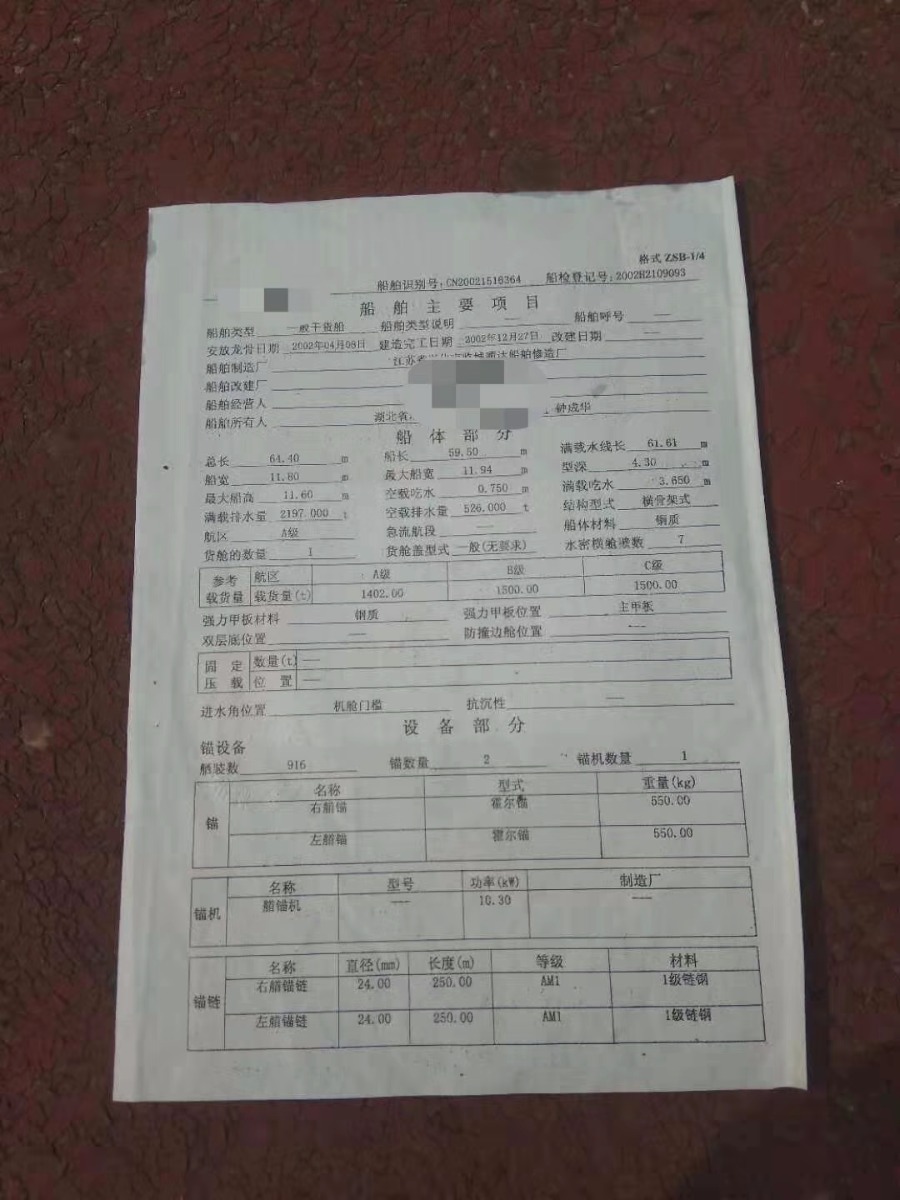 格式 ZSB-1/4
船舶识别号:CN20021516364 船检登记号:2002H2109093
船舶主要项目
船舶类型 一般干货船 船舶类型说明 — 船舶呼号 —
安放龙骨日期 2002年04月08日 建造完工日期 2002年12月27日 改建日期 —
船舶制造厂 江苏省 船舶修造厂
船舶改建厂
船舶经营人
船舶所有人 湖北省 钟成华
船体部分
总长 64.40 m 船长 59.50 m 满载水线长 61.61 m
船宽 11.80 m 最大船宽 11.94 m 型深 4.30 m
最大船高 11.60 m 空载吃水 0.750 m 满载吃水 3.650 m
满载排水量 2197.000 t 空载排水量 526.000 t 结构型式 横骨架式
航区 A级 急流航段 — 船体材料 钢质
货舱的数量 1 货舱盖型式 一般(无要求) 水密横舱壁数 7
参考载货量 航区 A级 B级 C级
载货量(t) 1402.00 1500.00 1500.00
强力甲板材料 钢质 强力甲板位置 主甲板
双层底位置 — 防撞边舱位置 —
固定压载 数量(t) —
位置 —
进水角位置 机舱门槛 抗沉性 —
设备部分
锚设备
舾装数 916 锚数量 2 锚机数量 1
锚 名称 型式 重量(kg)
右艏锚 霍尔锚 550.00
左艏锚 霍尔锚 550.00
锚机 名称 型号 功率(kW) 制造厂
艏锚机 — 10.30 —
锚链 名称 直径(mm) 长度(m) 等级 材料
右艏锚链 24.00 250.00 AM1 1级链钢
左艏锚链 24.00 250.00 AM1 1级链钢